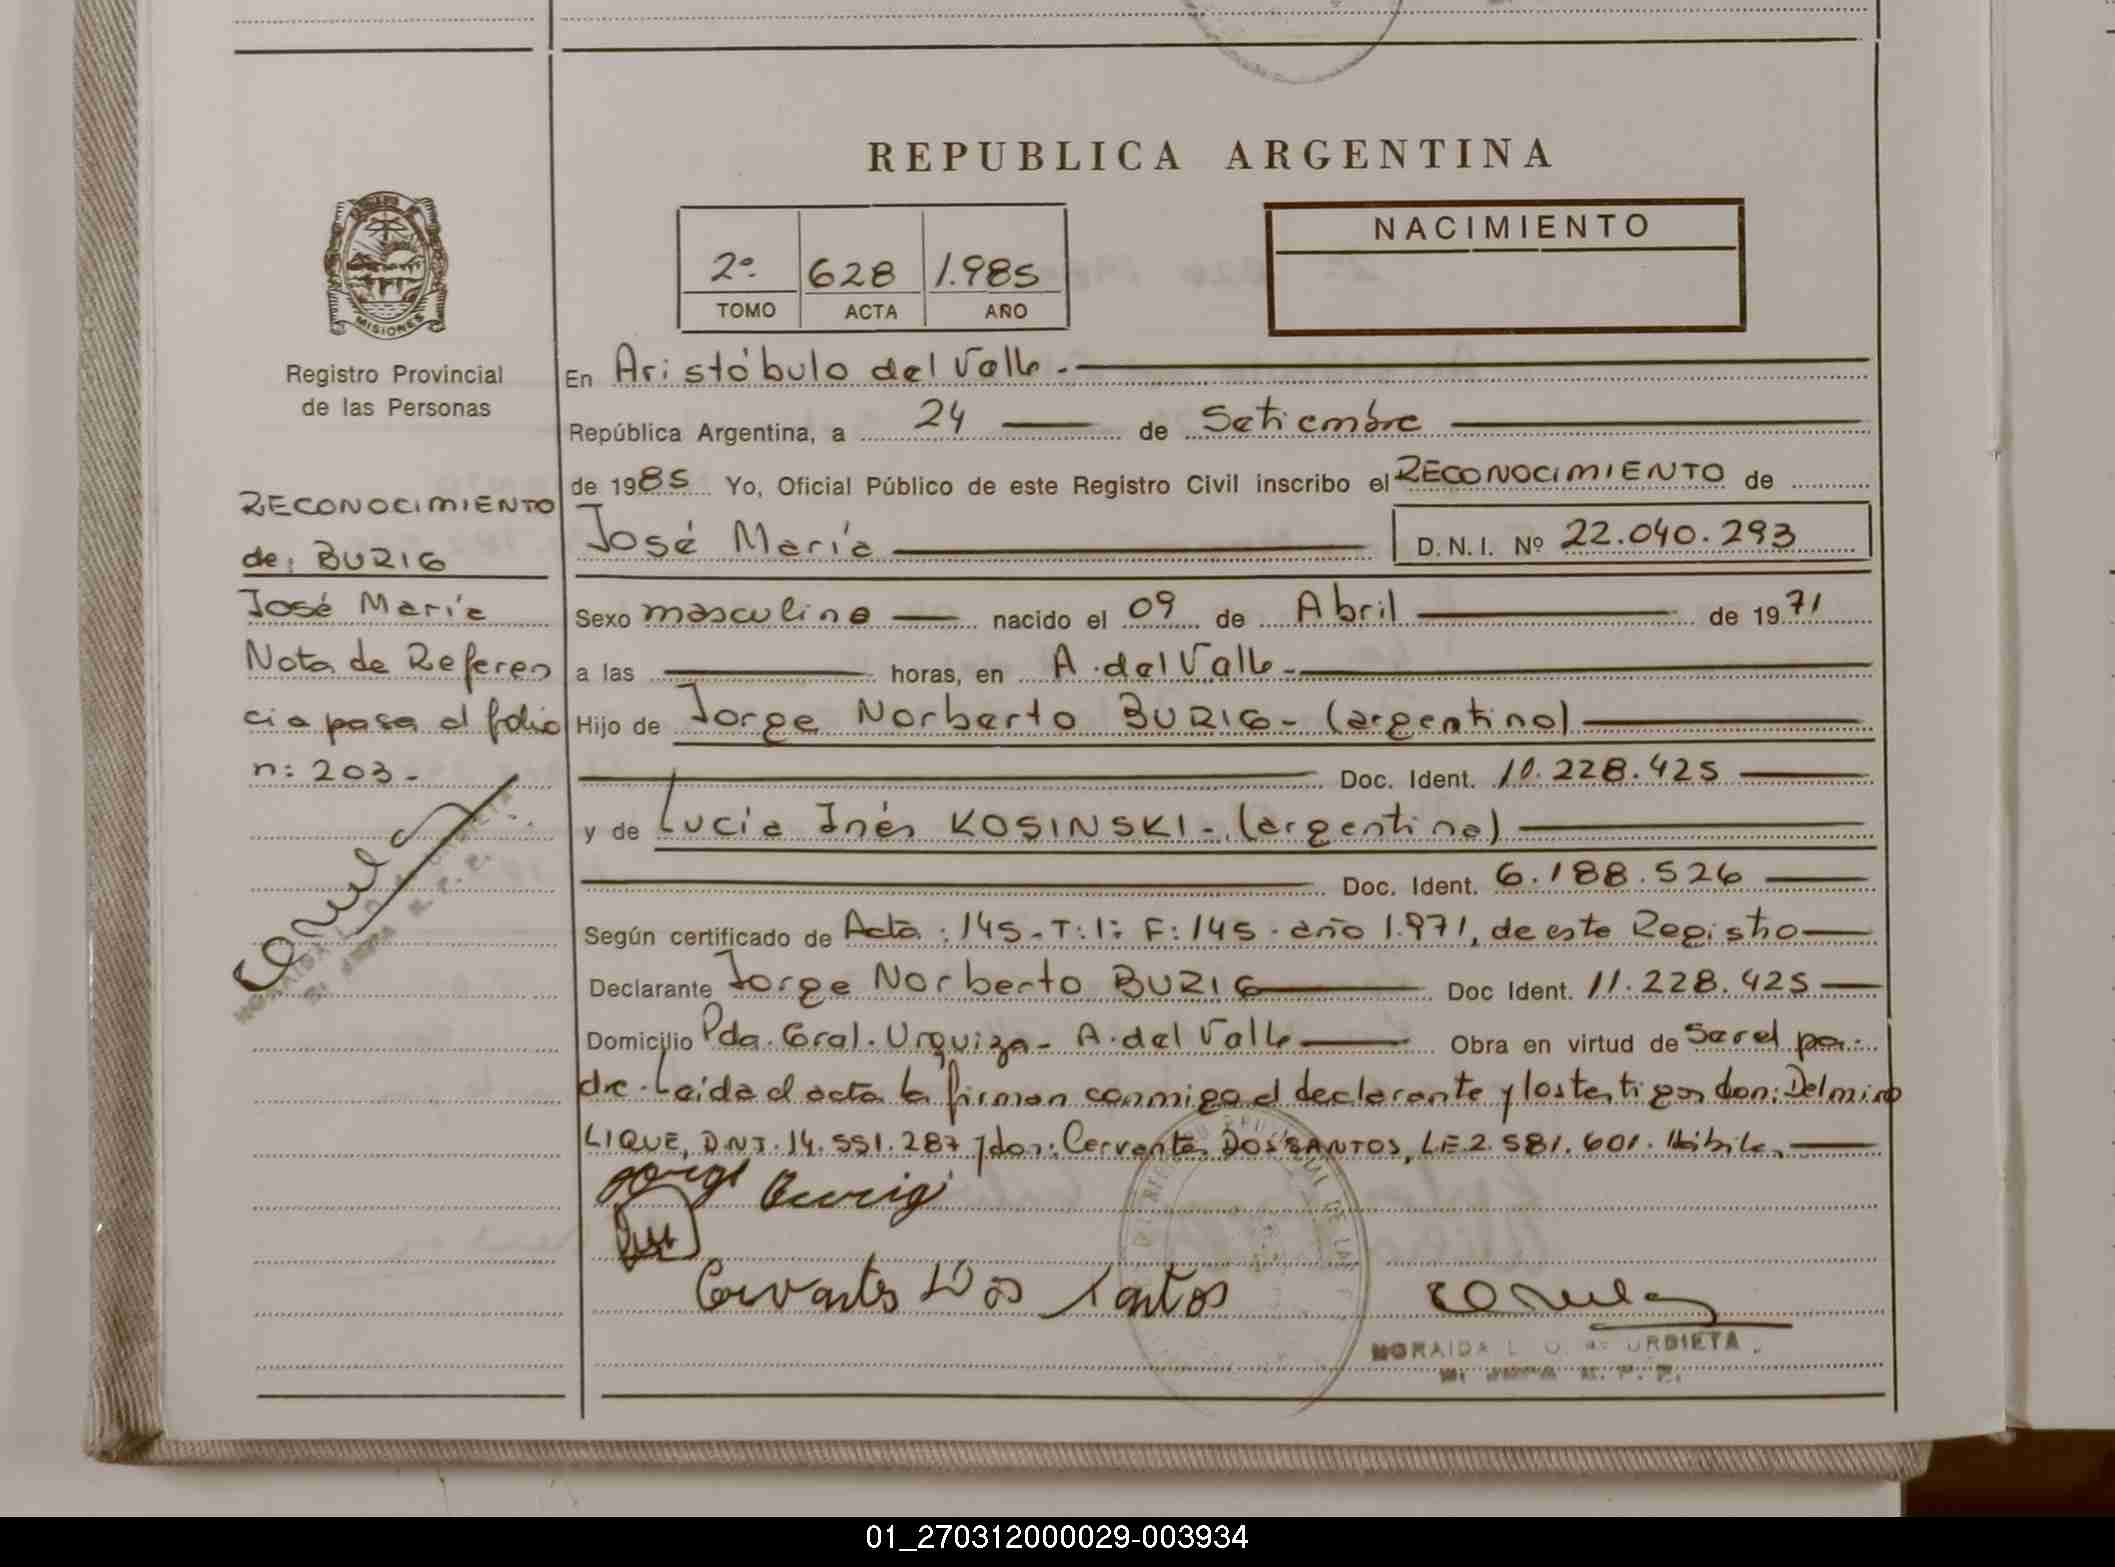 REPUBLICA ARGENTINA
NACIMIENTO
2º 628 1.985
TOMO ACTA AÑO
MISIONES
Registro Provincial
de las Personas
En Aristóbulo del Valle.-
República Argentina, a 24 de Setiembre
de 1985 Yo, Oficial Público de este Registro Civil inscribo el RECONOCIMIENTO de
José María D.N.I. Nº 22.040.293
Sexo masculino nacido el 09 de Abril de 1971
a las horas, en A. del Valle-
Hijo de Jorge Norberto BURIG- (argentino)
Doc. Ident. 10.228.425
y de Lucía Inés KOSINSKI-. (argentina)
Doc. Ident. 6.188.526
Según certificado de Acta: 145. T: 1: F: 145. año 1.971, de este Registro
Declarante Jorge Norberto BURIG Doc Ident. 11.228.425
Domicilio Pda. Gral. Urquiza- A. del Valle Obra en virtud de Ser el pa-
dre. Leida el acta la firman conmigo el declarante y los testigos don: Delmiro
LIQUE, DNI. 14.551.287 y don: Cervantes DOS SANTOS, LE 2.581.601. Hábiles.
Jorge Burig
Cervantes Dos Santos
NORAIDA L. O. de URDIETA
RECONOCIMIENTO
de: BURIG
José María
Nota de Referen
cia pasa al folio
n: 203-
01_270312000029-003934